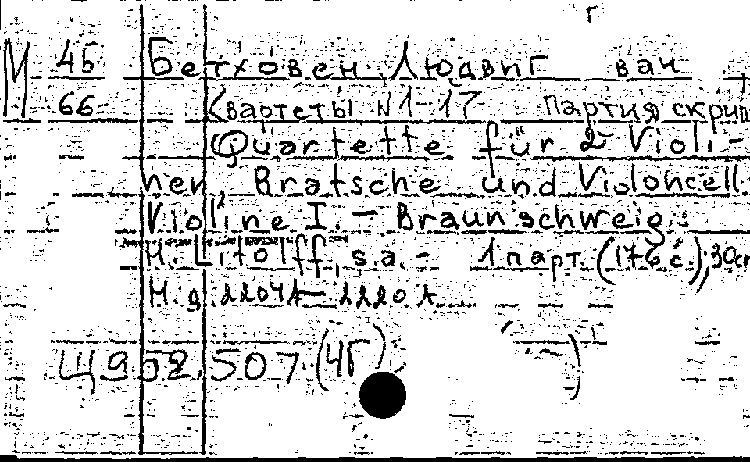 г
М 45 Бетховен, Людвиг ван
66 Квартеты N 1-17 партия скрип
Quartette für 2 Violi-
nen, Bratsche und Violoncell.
Violine I. - Braunschweig:
H. Litolff, s.a. - 1 парт. (176 с.), 30с
H.д. 2204A - 2220A
Щ952.507 (ЧГ)